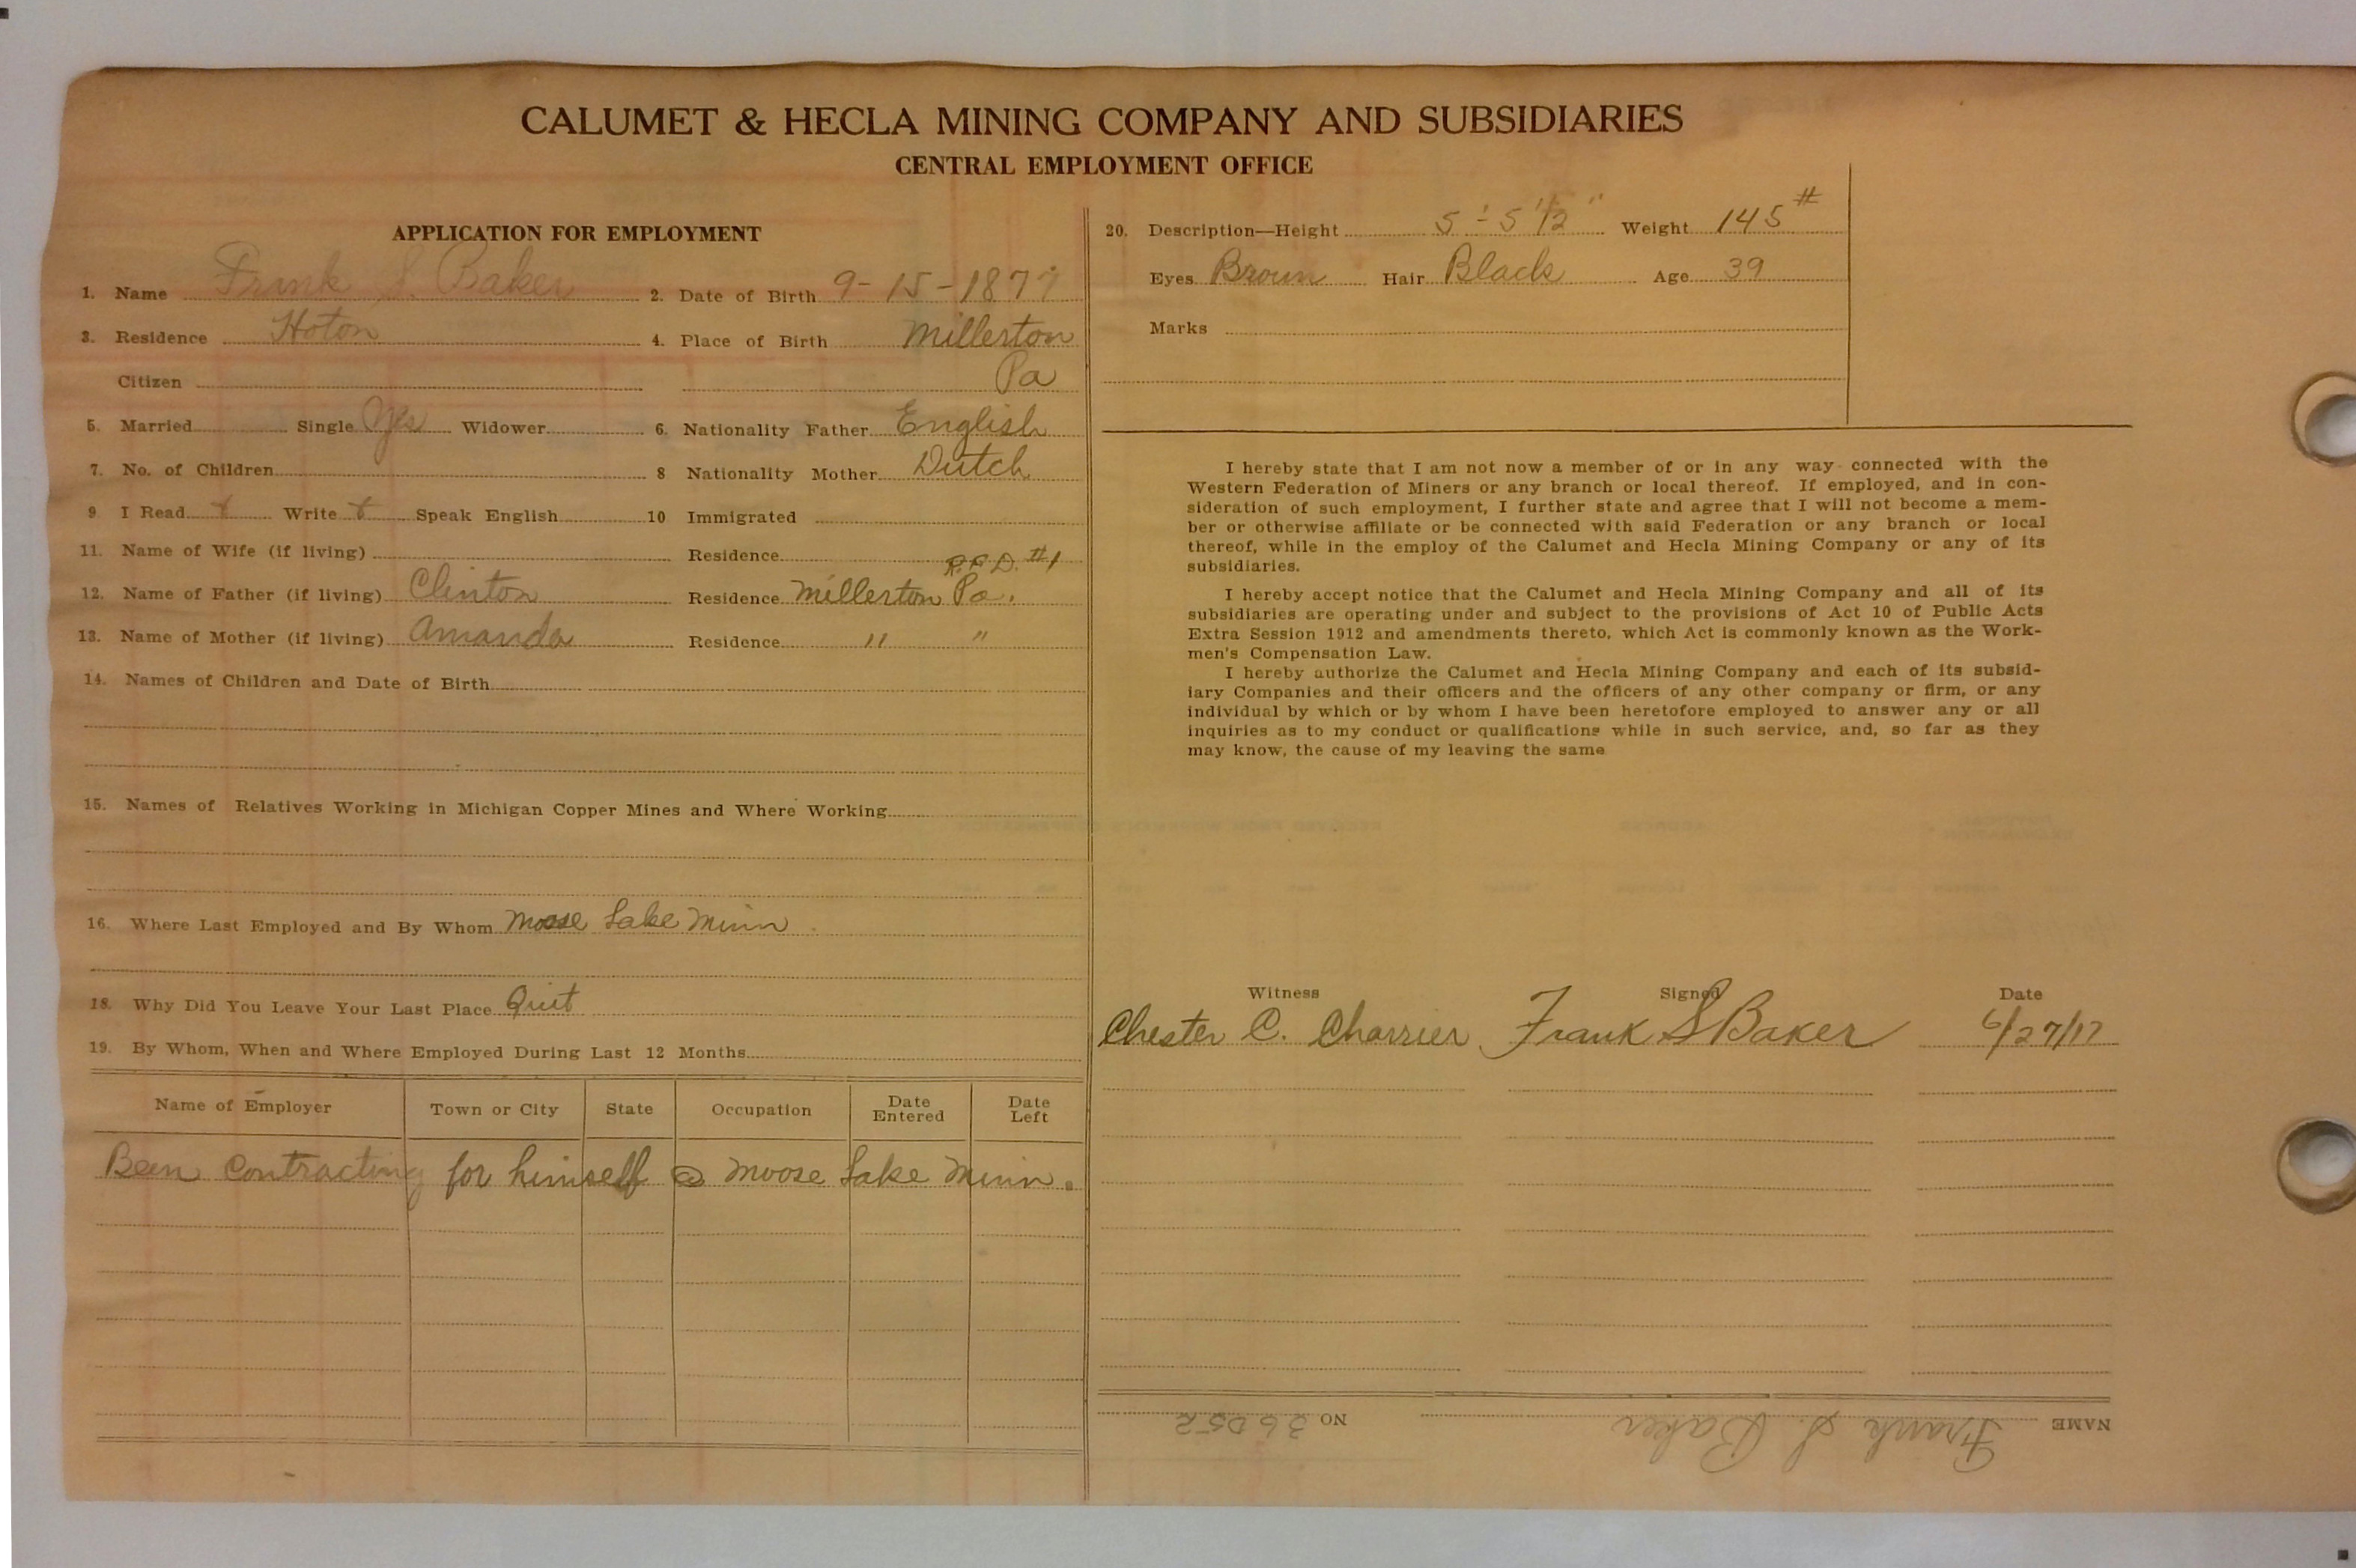 CALUMET & HECLA MINING COMPANY AND SUBSIDIARIES
CENTRAL EMPLOYMENT OFFICE
APPLICATION FOR EMPLOYMENT
1. Name Frank S. Baker 2. Date of Birth 9-15-1877
3. Residence Hoton 4. Place of Birth Millerton
Citizen Pa
5. Married Single Yes Widower 6. Nationality Father English
7. No. of Children 8 Nationality Mother Dutch
9. I Read x Write x Speak English 10 Immigrated
11. Name of Wife (if living) Residence
R.F.D. #1
12. Name of Father (if living) Clinton Residence Millerton Pa.
13. Name of Mother (if living) Amanda Residence " "
14. Names of Children and Date of Birth
15. Names of Relatives Working in Michigan Copper Mines and Where Working
16. Where Last Employed and By Whom Moose Lake Minn
18. Why Did You Leave Your Last Place Quit
19. By Whom, When and Where Employed During Last 12 Months
Name of Employer Town or City State Occupation Date Entered Date Left
Been Contracting for himself @ Moose Lake Minn.
20. Description—Height 5'-5 1/2" Weight 145#
Eyes Brown Hair Black Age 39
Marks
I hereby state that I am not now a member of or in any way connected with the
Western Federation of Miners or any branch or local thereof. If employed, and in con-
sideration of such employment, I further state and agree that I will not become a mem-
ber or otherwise affiliate or be connected with said Federation or any branch or local
thereof, while in the employ of the Calumet and Hecla Mining Company or any of its
subsidiaries.
I hereby accept notice that the Calumet and Hecla Mining Company and all of its
subsidiaries are operating under and subject to the provisions of Act 10 of Public Acts
Extra Session 1912 and amendments thereto, which Act is commonly known as the Work-
men's Compensation Law.
I hereby authorize the Calumet and Hecla Mining Company and each of its subsid-
iary Companies and their officers and the officers of any other company or firm, or any
individual by which or by whom I have been heretofore employed to answer any or all
inquiries as to my conduct or qualifications while in such service, and, so far as they
may know, the cause of my leaving the same
Witness Signed Date
Chester C. Charrier Frank S Baker 6/27/17
NAME Frank S. Baker NO 36052